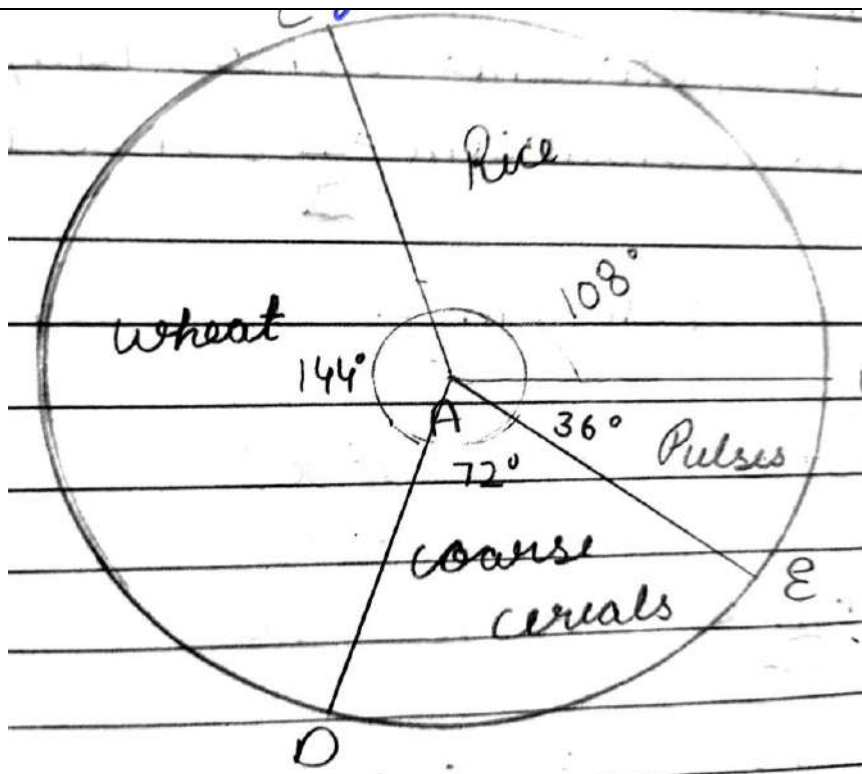 C
Rice
108°
wheat
144°
A
36°
Pulses
72°
coarse
cereals
E
D